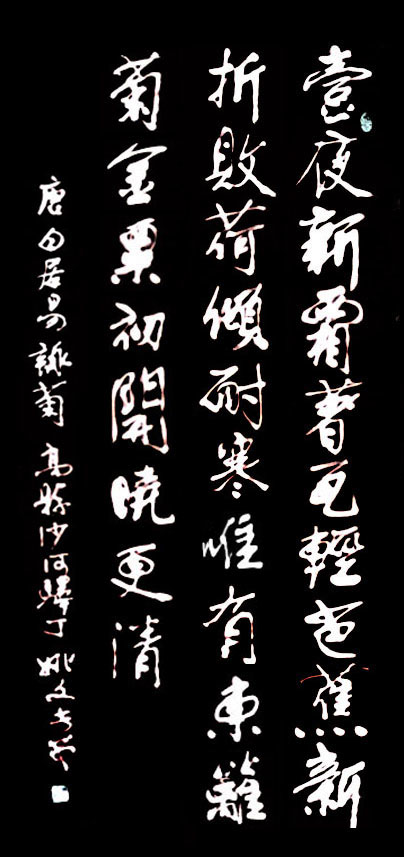 壹夜新霜著瓦輕芭蕉新
折敗荷傾耐寒唯有東籬
菊金粟初開曉更清
唐白居易詠菊 高縣沙河驛丁 姚文